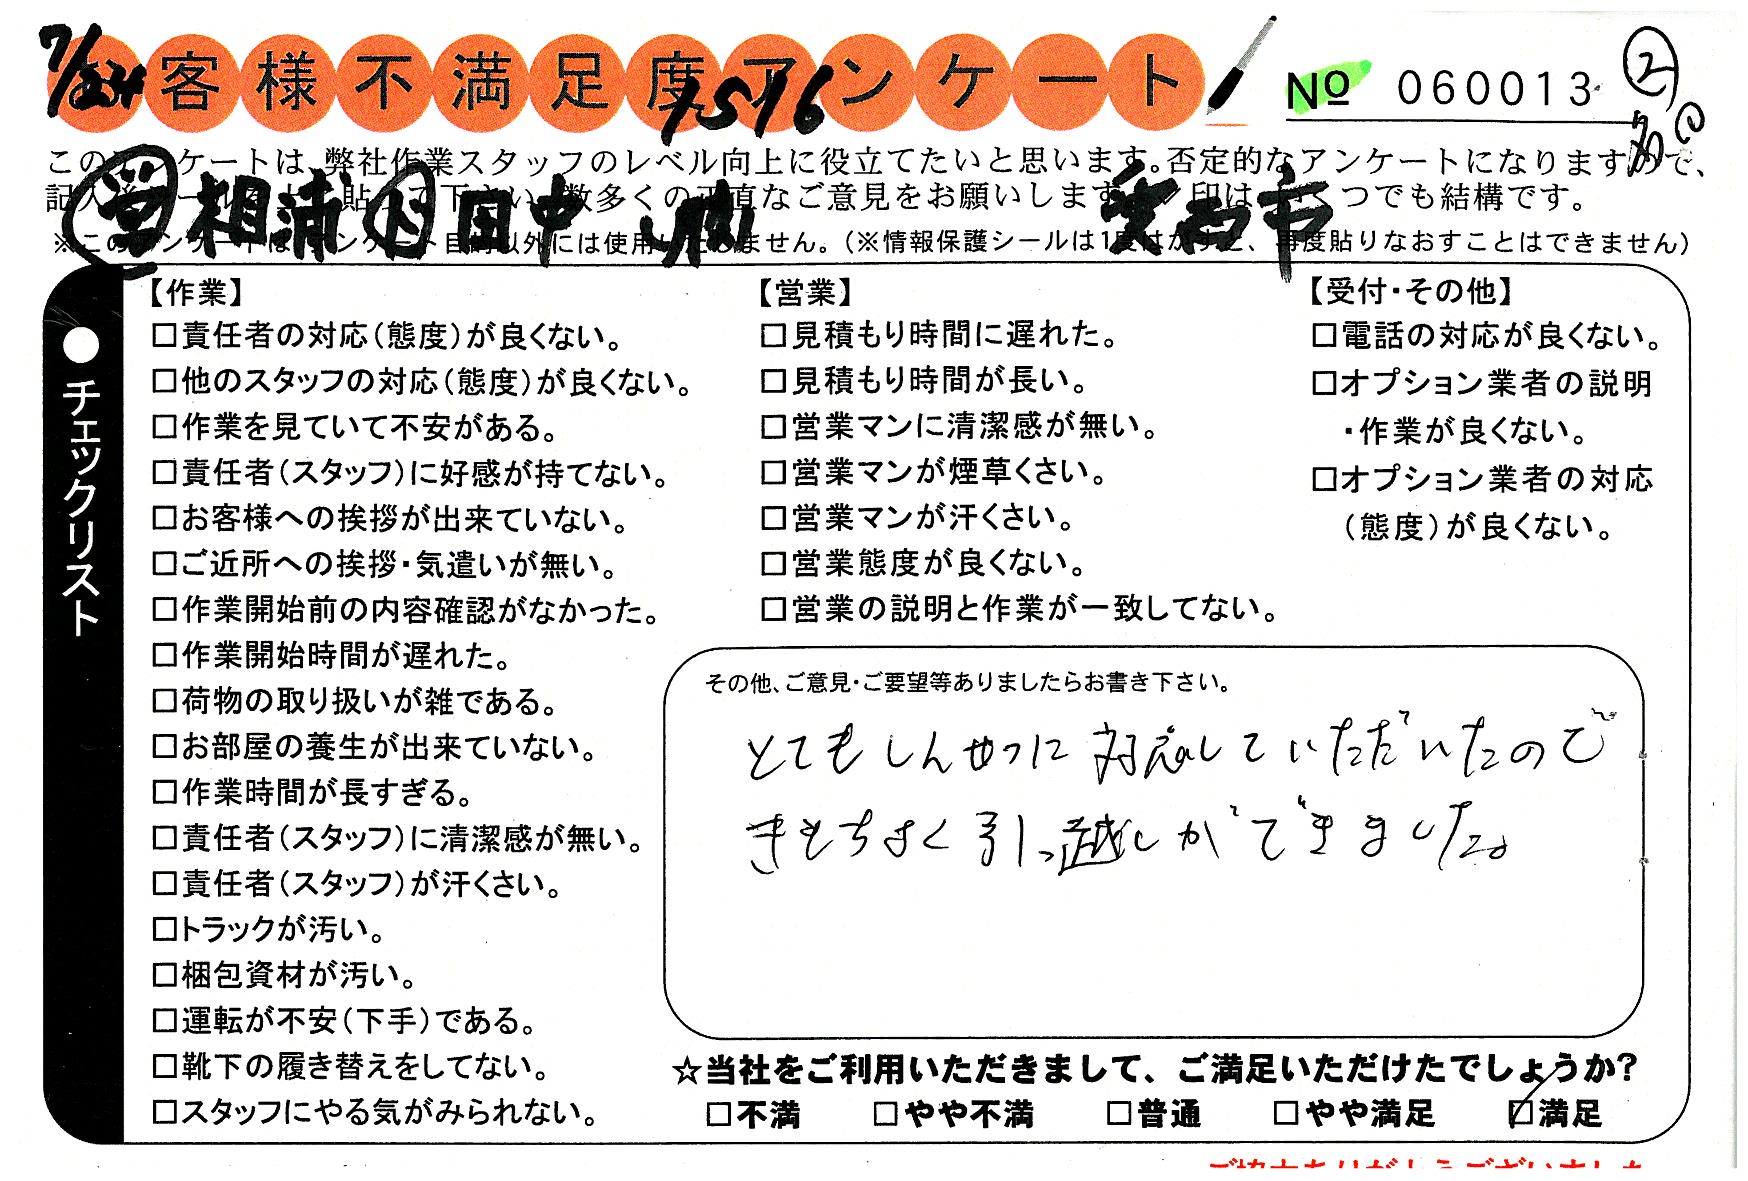 7/24
お客様不満足度アンケート
1516
No 060013
②
このアンケートは、弊社作業スタッフのレベル向上に役立てたいと思います。否定的なアンケートになりますので、
記入後シールを上に貼って下さい。数多くの正直なご意見をお願いします。レ印はいくつでも結構です。
※このアンケートはアンケート目的以外には使用いたしません。(※情報保護シールは1度はがすと、再度貼りなおすことはできません)
営 相浦 田中
愛西市
●チェックリスト
【作業】
□責任者の対応(態度)が良くない。
□他のスタッフの対応(態度)が良くない。
□作業を見ていて不安がある。
□責任者(スタッフ)に好感が持てない。
□お客様への挨拶が出来ていない。
□ご近所への挨拶・気遣いが無い。
□作業開始前の内容確認がなかった。
□作業開始時間が遅れた。
□荷物の取り扱いが雑である。
□お部屋の養生が出来ていない。
□作業時間が長すぎる。
□責任者(スタッフ)に清潔感が無い。
□責任者(スタッフ)が汗くさい。
□トラックが汚い。
□梱包資材が汚い。
□運転が不安(下手)である。
□靴下の履き替えをしてない。
□スタッフにやる気がみられない。
【営業】
□見積もり時間に遅れた。
□見積もり時間が長い。
□営業マンに清潔感が無い。
□営業マンが煙草くさい。
□営業マンが汗くさい。
□営業態度が良くない。
□営業の説明と作業が一致してない。
【受付・その他】
□電話の対応が良くない。
□オプション業者の説明
・作業が良くない。
□オプション業者の対応
(態度)が良くない。
その他、ご意見・ご要望等ありましたらお書き下さい。
とてもしんせつに対応していただいたので
きもちよく引っ越しができました。
☆当社をご利用いただきまして、ご満足いただけたでしょうか?
□不満 □やや不満 □普通 □やや満足 ☑満足
ご協力ありがとうございました